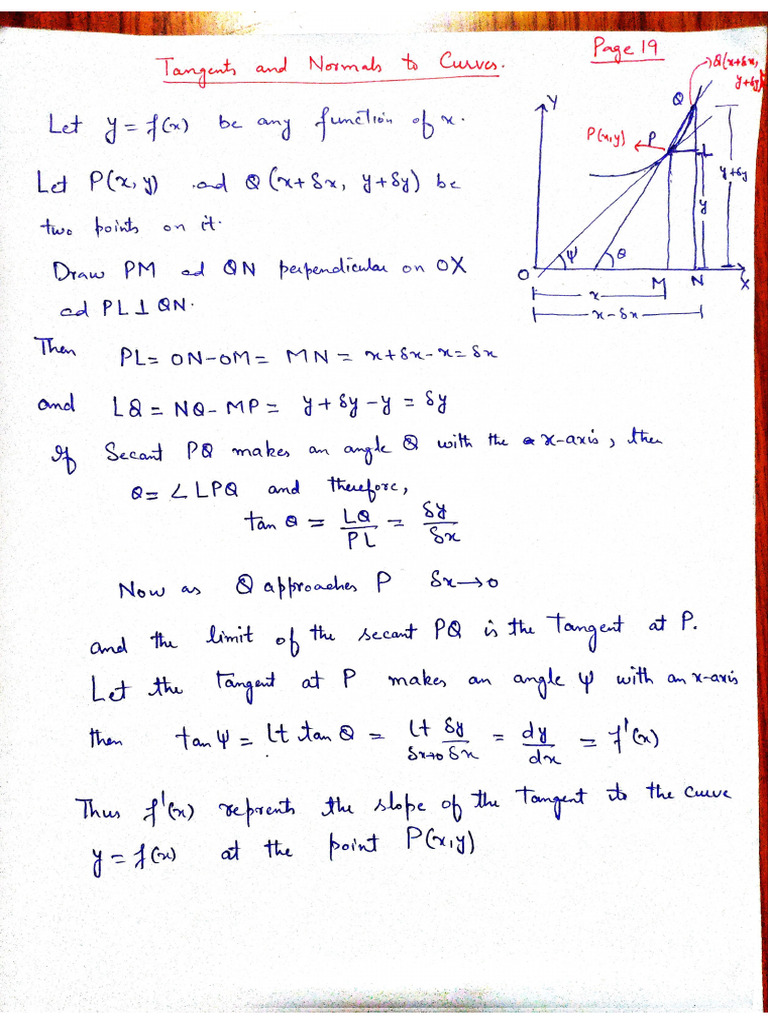 Page 19
Tangents and Normals to Curves.
Q(x+δx, y+δy)
Let y = f(x) be any function of x.
Y
Q
P(x,y)
P
L
y
y+δy
ψ
θ
O
M
N
X
x
x-δx
Let P(x, y) and Q(x+δx, y+δy) be
two points on it.
Draw PM ad QN perpendicular on OX
ad PL⊥QN.
Then PL = ON-OM = MN = x+δx-x = δx
and LQ = NQ-MP = y+δy-y = δy
If Secant PQ makes an angle θ with the x-axis, then
θ = ∠LPQ and therefore,
tan θ = LQ/PL = δy/δx
Now as Q approaches P δx→0
and the limit of the secant PQ is the Tangent at P.
Let the Tangent at P makes an angle ψ with an x-axis
then tan ψ = lt tan θ = lt δx→0 δy/δx = dy/dx = f'(x)
Thus f'(x) reprents the slope of the Tangent to the curve
y = f(x) at the point P(x,y)